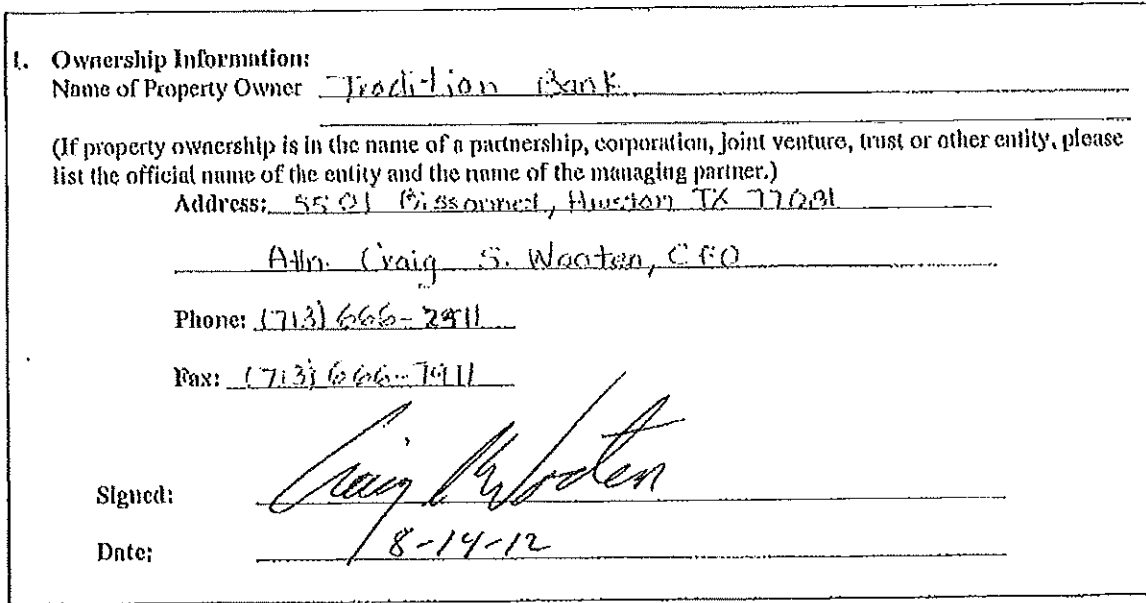 1. Ownership Information:
Name of Property Owner Tradition Bank
(If property ownership is in the name of a partnership, corporation, joint venture, trust or other entity, please
list the official name of the entity and the name of the managing partner.)
Address: 5501 Bissonnet, Houston TX 77081
Attn. Craig S. Wooten, CFO
Phone: (713) 666-2511
Fax: (713) 666-7911
Signed: Craig Wooten
Date: 8-14-12